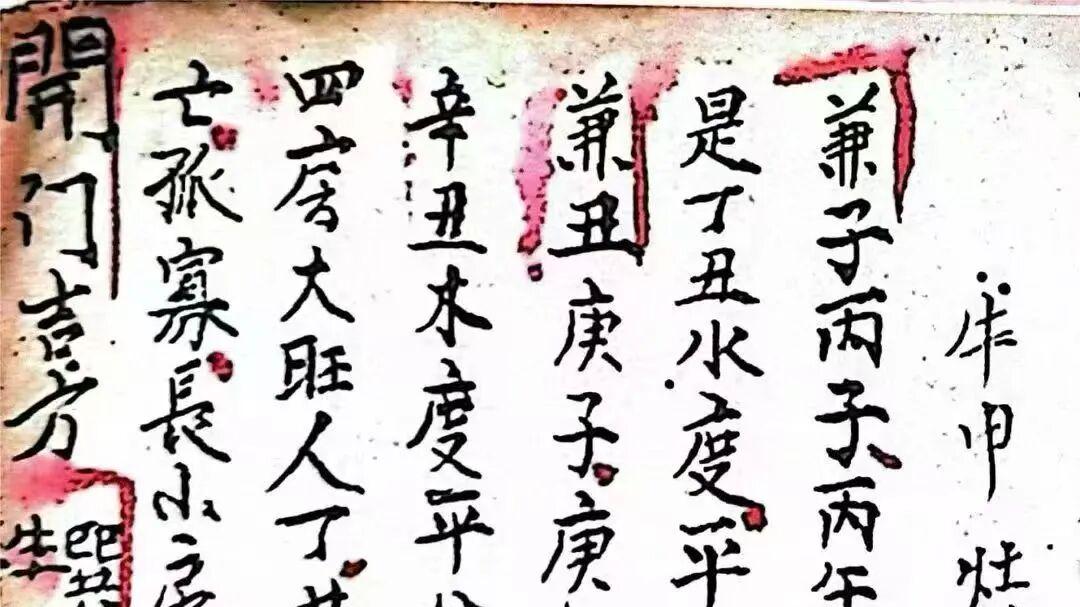 年甲灶
兼子丙子丙午
是丁丑水度平
兼丑庚子庚
辛丑木度平分
四房大旺人丁
亡孤寡長小房
開门吉方
巽